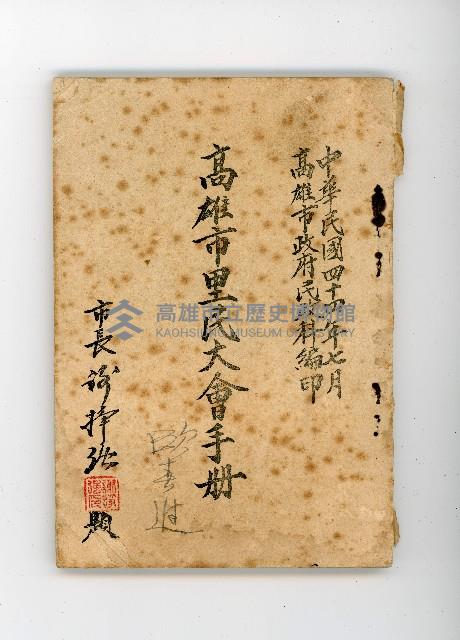 中華民國四十四年七月
高雄市政府民政科編印
高雄市里民大會手册
市長謝掙強題
歐壽進
高雄市立歷史博物館
KAOHSIUNG MUSEUM OF HISTORY